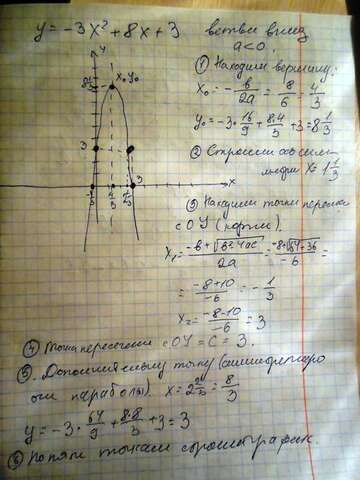 y = -3x² + 8x + 3 ветви вниз
a<0.
① Находим вершину:
x₀ = -b/2a = 8/6 = 4/3
y₀ = -3·16/9 + 8·4/3 + 3 = 8 1/3
② Строим ось сим
x = 1 1/3
③ Находим точки пересеч
с OY (корни).
x₁ = -b+√b²-4ac/2a = -8+√64+36/-6 =
= -8+10/-6 = -1/3
x₂ = -8-10/-6 = 3
④ Точка пересечения с OY = C = 3.
⑤. Дополнительную точку
оси параболы). x = 2 2/3 = 8/3
y = -3·64/9 + 8·8/3 + 3 = 3
⑥ По пяти точкам строим график.
y
x₀, y₀
3
-1/3
4/3
3
x